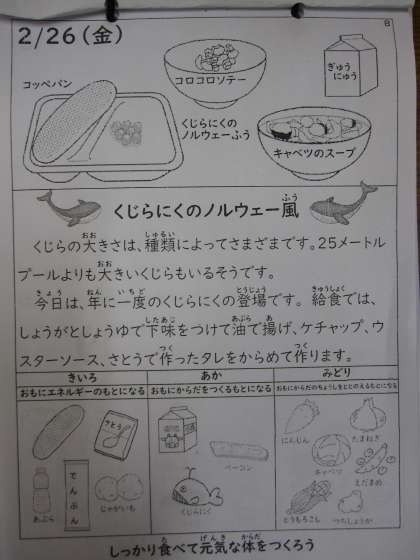 2/26(金)
8
コッペパン
コロコロソテー
ぎゅうにゅう
くじらにくの
ノルウェーふう
キャベツのスープ
くじらにくのノルウェー風
くじらの大きさは、種類によってさまざまです。25メートル
プールよりも大きいくじらもいるそうです。
今日は、年に一度のくじらにくの登場です。給食では、
しょうがとしょうゆで下味をつけて油で揚げ、ケチャップ、ウ
スターソース、さとうで作ったタレをからめて作ります。
きいろ あか みどり
おもにエネルギーのもとになる おもにからだをつくるもとになる おもにからだのちょうしをととのえるもとになる
さとう
にんじん
たまねぎ
ベーコン
キャベツ
えだまめ
でんぷん
あぶら
じゃがいも
くじらにく
とうもろこし
つちしょうが
しっかり食べて元気な体をつくろう